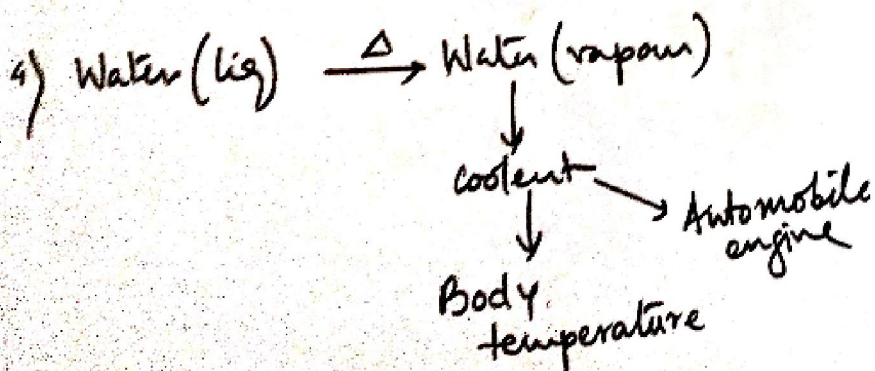 4) Water (liq) Δ → Water (vapour)
↓
Coolent → Automobile
engine
↓
Body
temperature